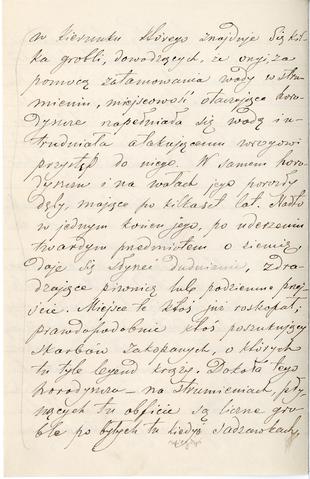 w kierunku którego znajduje się kil-
ka grobli, dowodzących, że onyi za
pomocą zatamowania wody w stru-
mieniu, miejscowość otaczająca horo-
dyszcze napełniała się wodą i u-
trudniała atakującemu wrogowi
przystęp do niego. W samem horo-
dyszczu i na wałach jego porosły
dęby, mające po kilkaset lat. Nadto
w jednym końcu jego, po uderzeniu
twardym przedmiotem o ziemię,
daje się słyszeć dudnienie, zdra-
dzające piwnicę lub podziemne przej-
ście. Miejsce te ktoś już rozkopał,
prawdopodobnie ktoś poszukujący
skarbów zakopanych, o których
tu tyle legend krąży. Dokoła tego
horodyszcza – na strumieniach, pły-
nących tu obficie są liczne gro-
ble po byłych tu kiedyś sadzawkach,